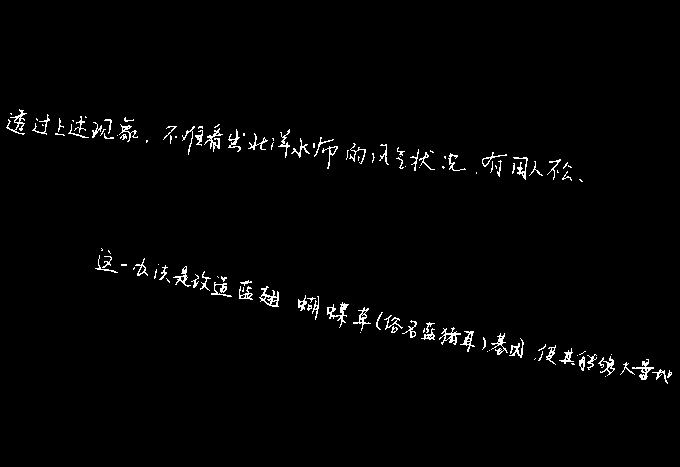 透过上述现象，不难看出北洋水师的风气状况，有用人不公、
这一办法是改造蓝翅蝴蝶草（俗名蓝猪耳）基因，使其能够大量地